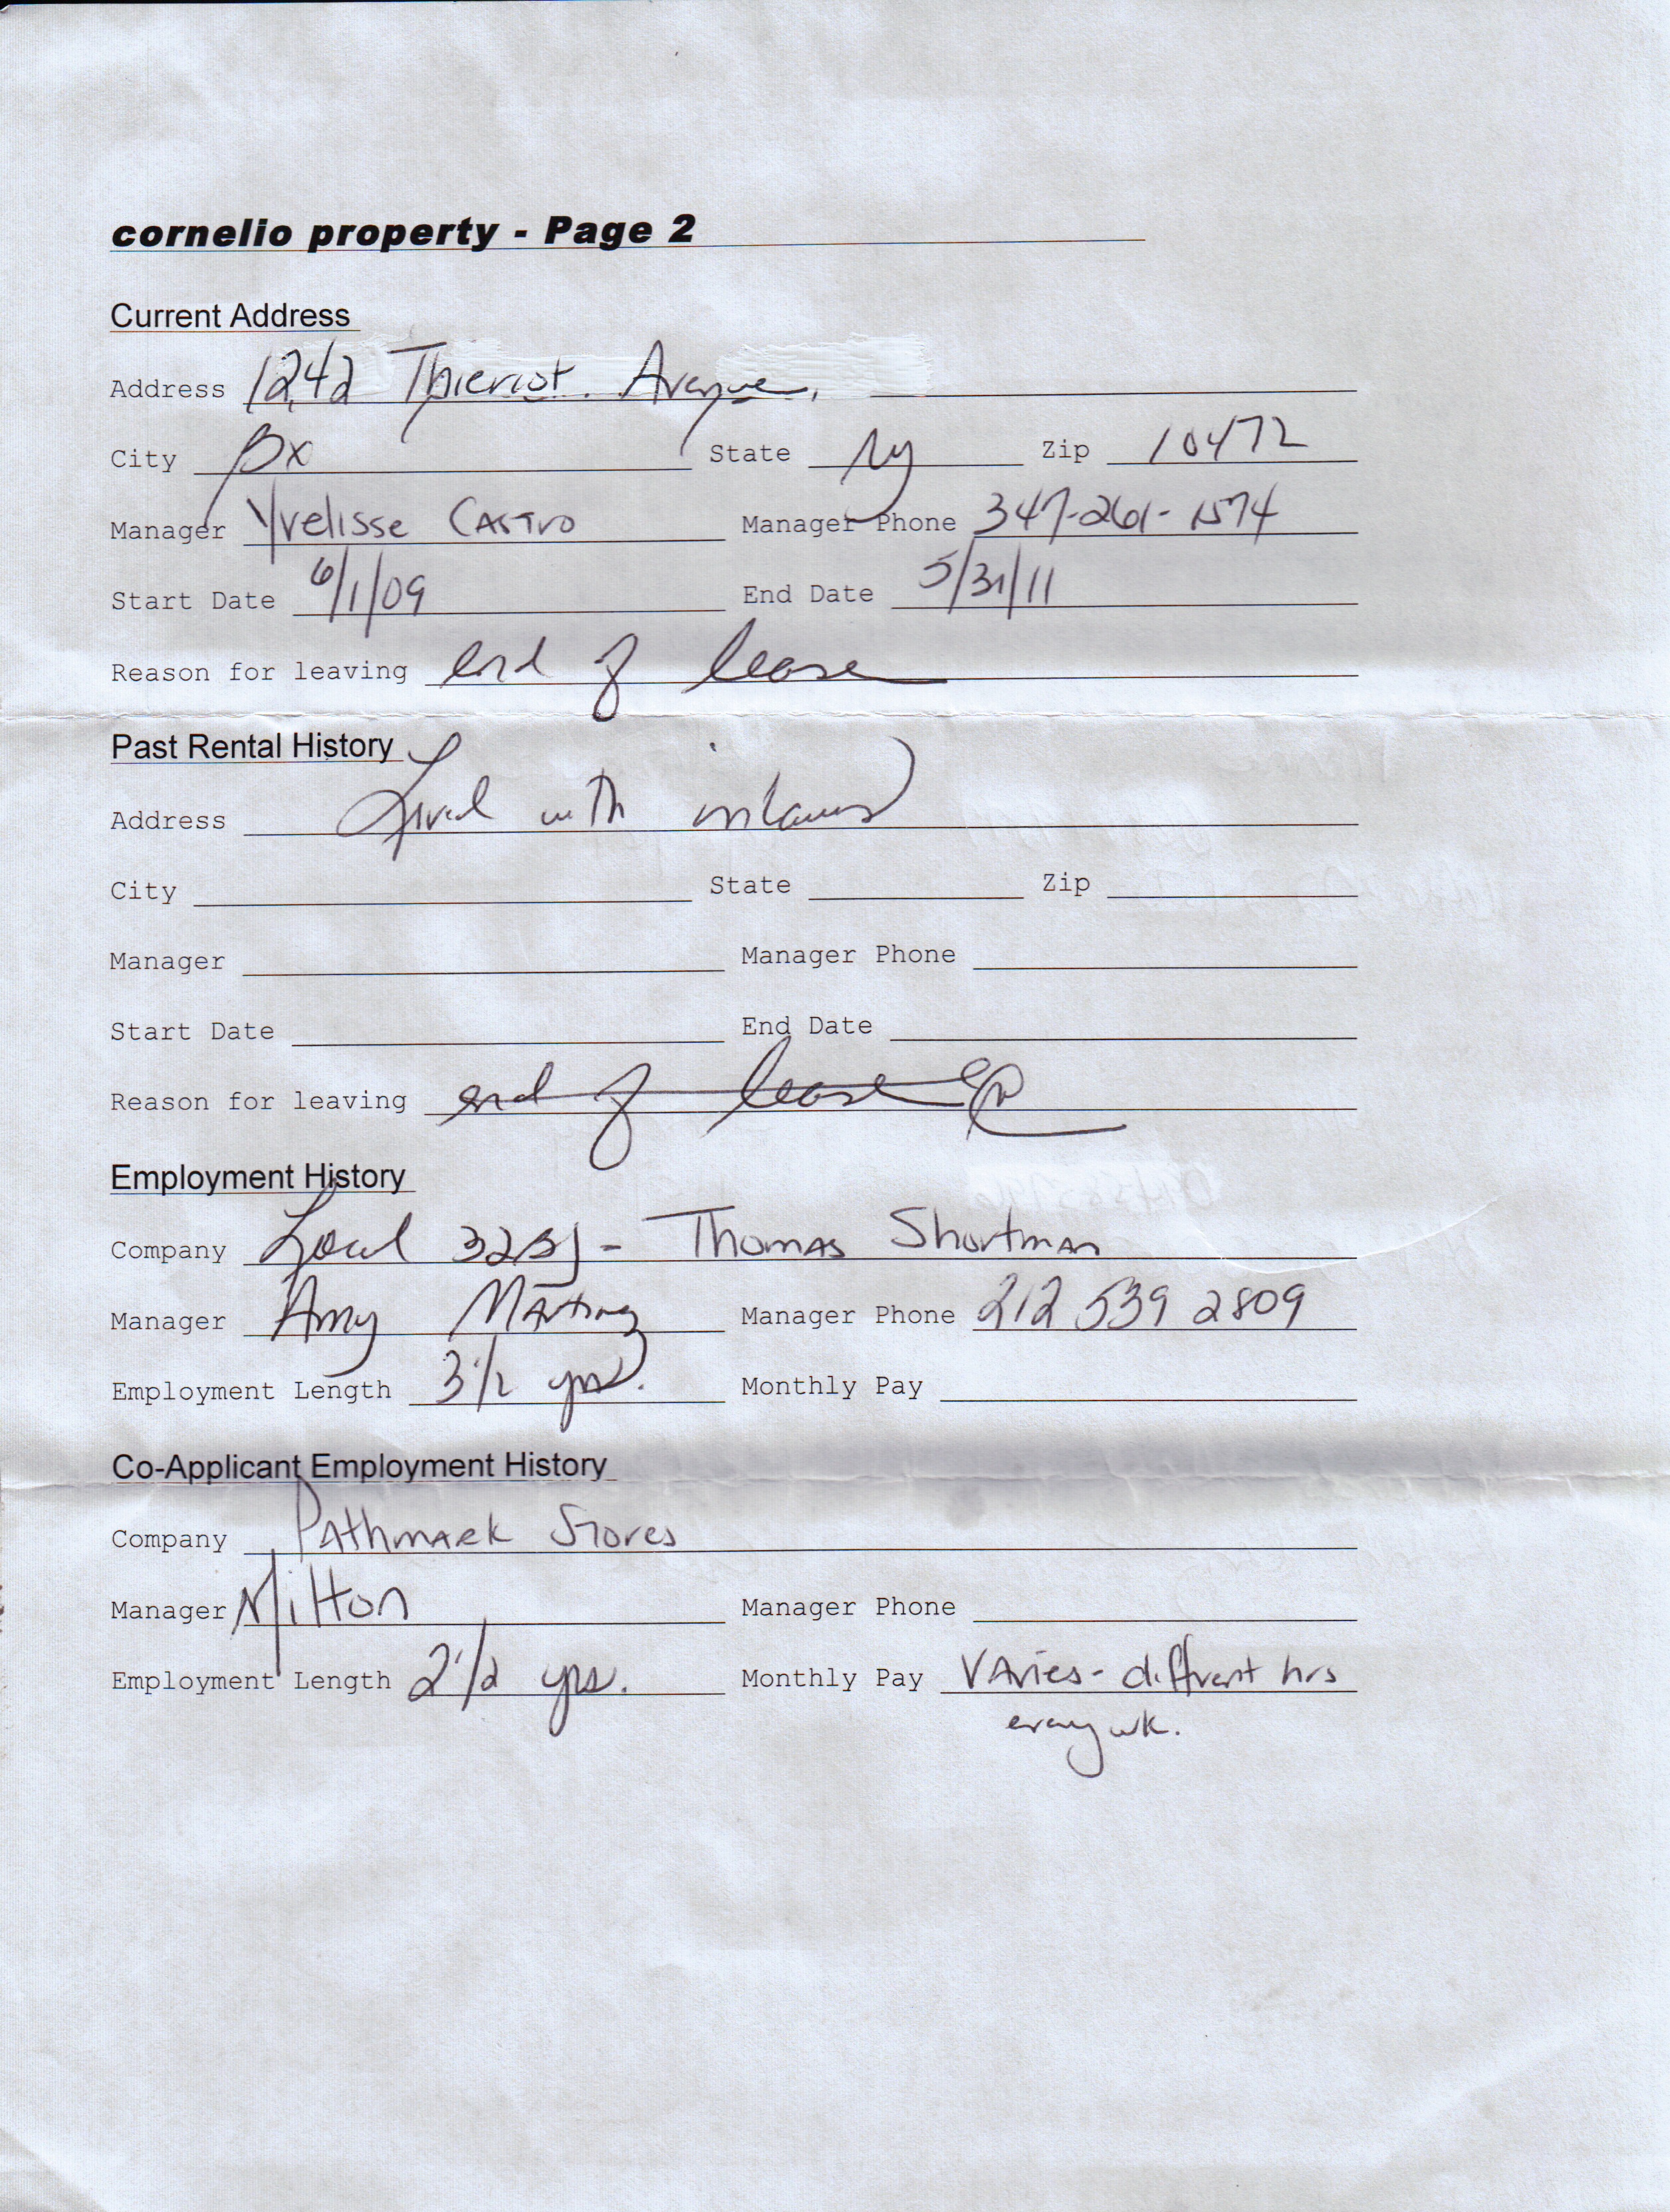 cornelio property - Page 2
Current Address
Address 1242 Thieriot Avenue,
City Bx State Ny Zip 10472
Manager Yvelisse Castro Manager Phone 347-261-1574
Start Date 6/1/09 End Date 5/31/11
Reason for leaving end of lease
Past Rental History
Address Lived with inlaws
City State Zip
Manager Manager Phone
Start Date End Date
Reason for leaving end of lease
Employment History
Company Local 32BJ - Thomas Shortman
Manager Amy Manager Phone 212 539 2809
Employment Length 3 1/2 yrs. Monthly Pay
Co-Applicant Employment History
Company Pathmark Stores
Manager Milton Manager Phone
Employment Length 2 1/2 yrs. Monthly Pay Varies - diffrent hrs
every wk.